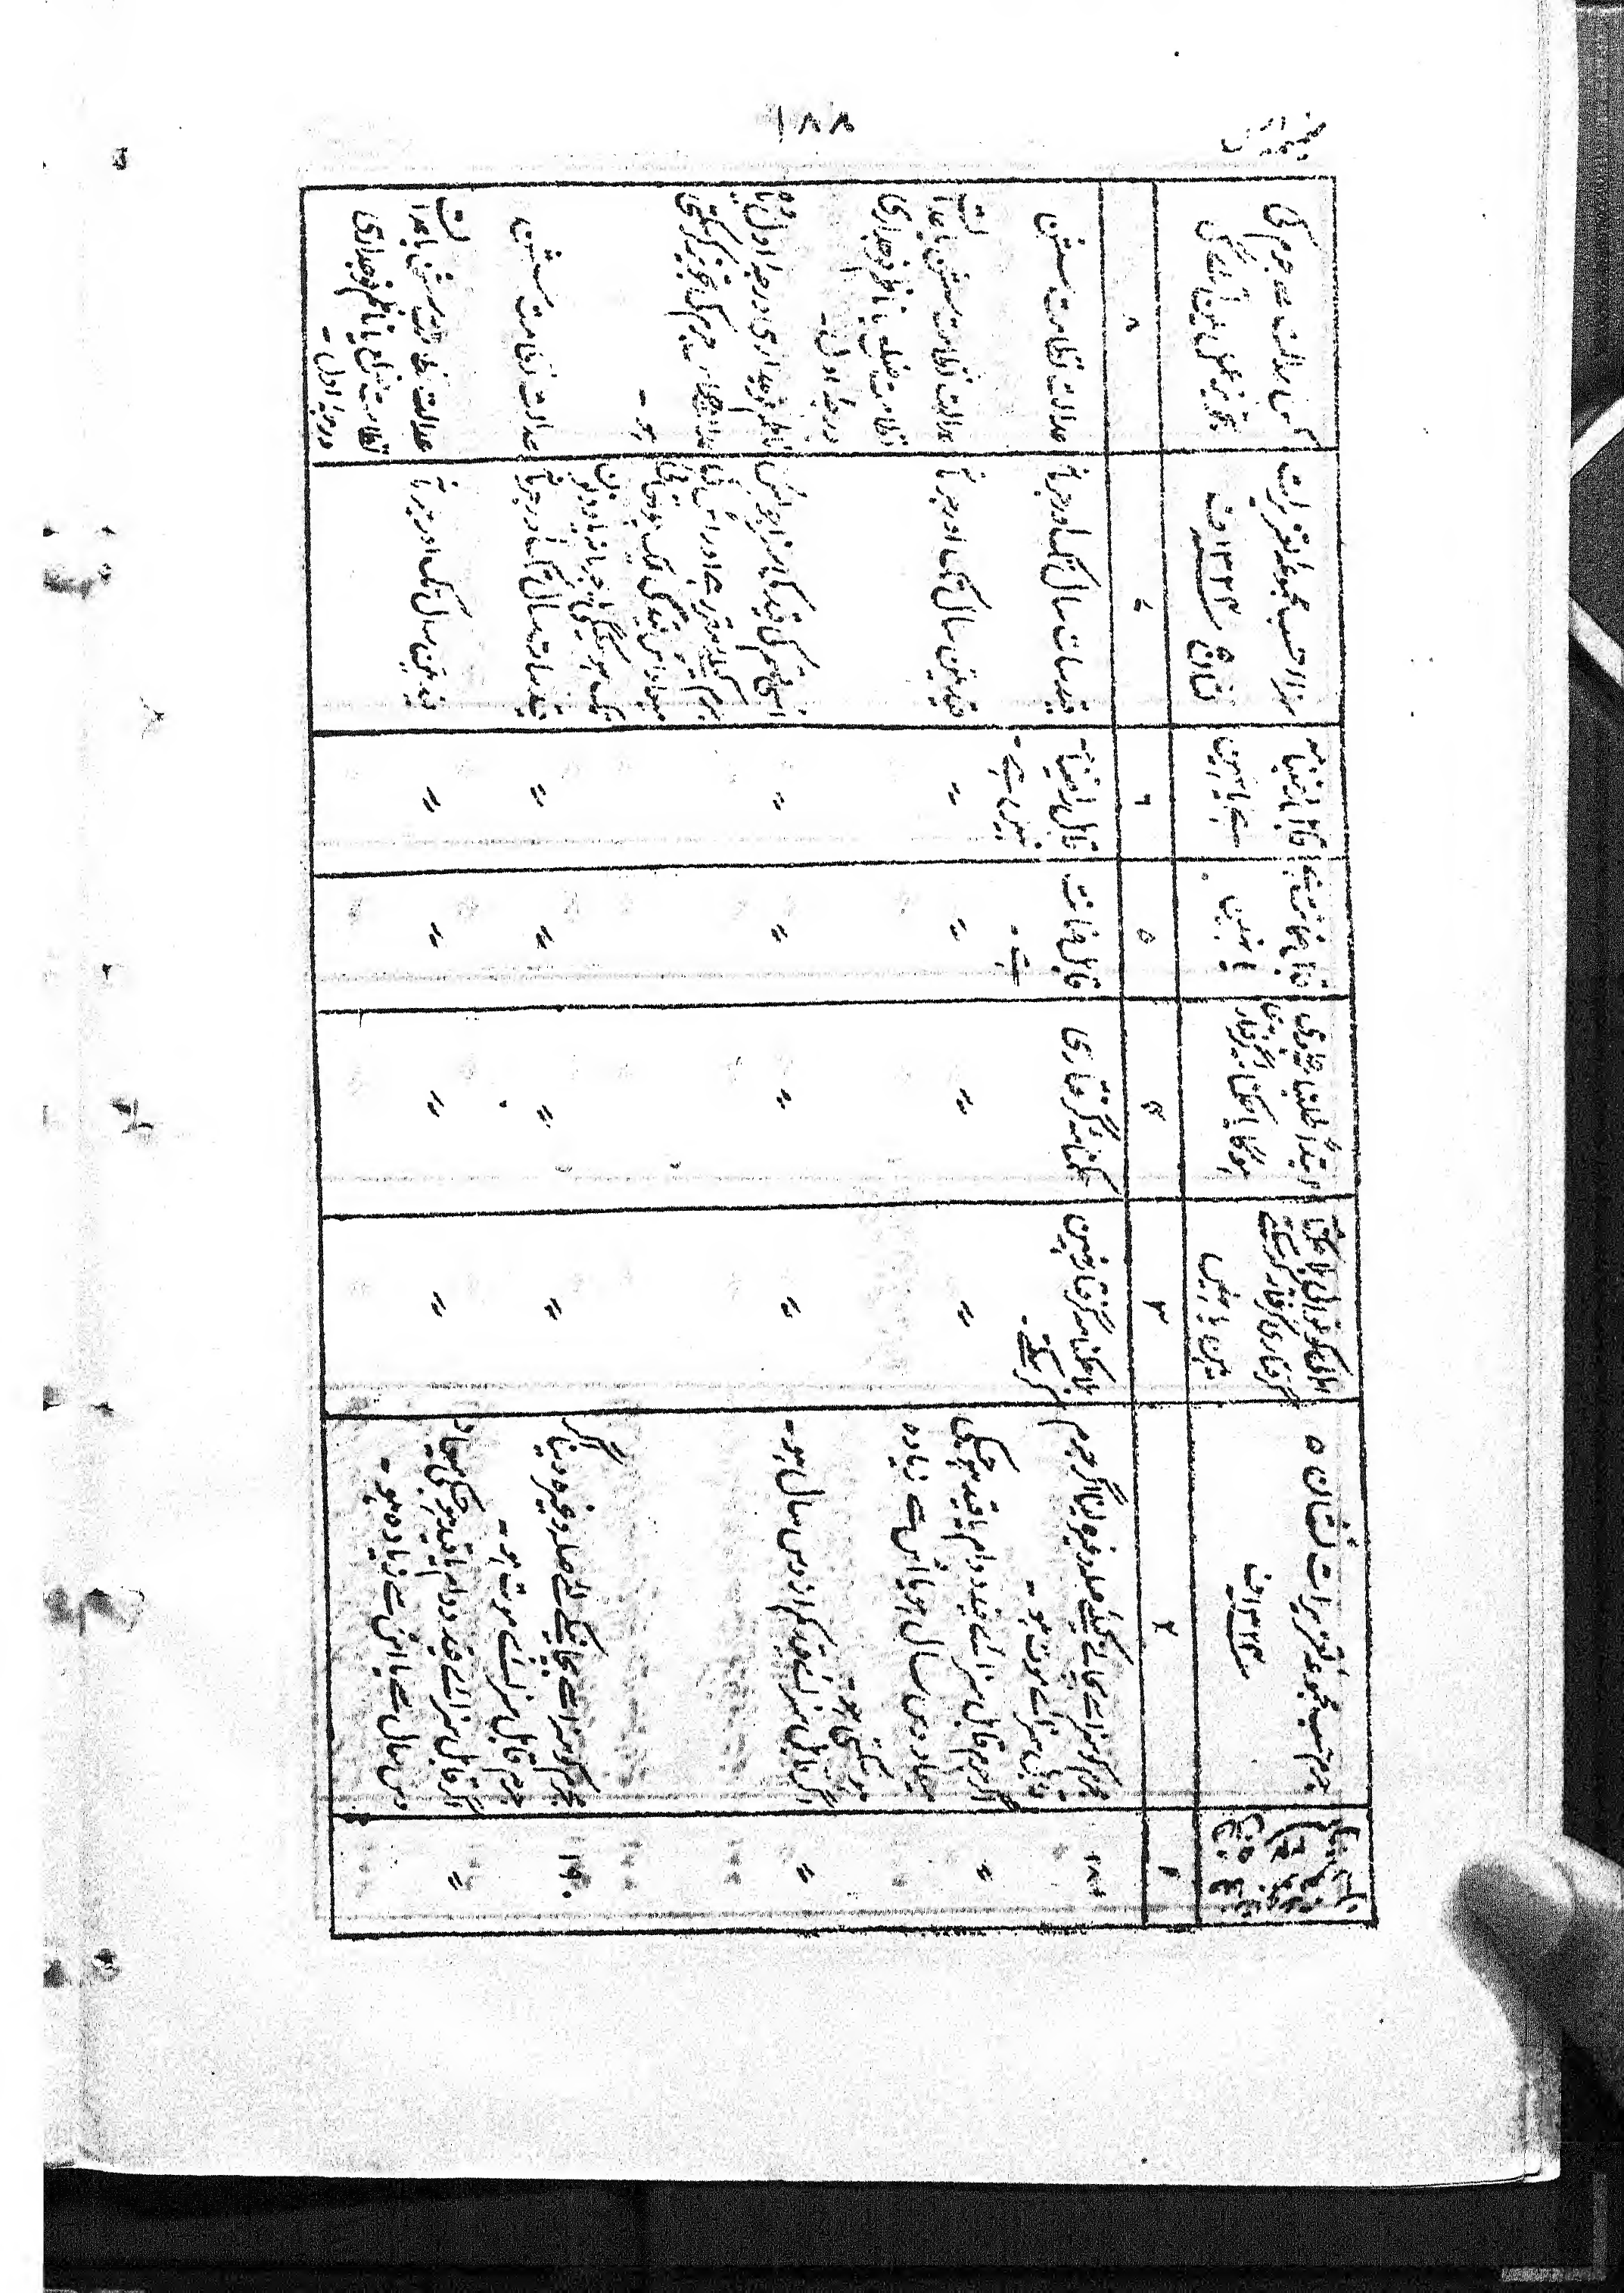 ۱۸۸
جرم حسب مجموعۂ تعزیرات نشان ۵
سنہ ۱۳۲۴ ف
گرفتاری گرفتار کرسکتے
ہیں یا نہیں
ہوگا یا حکمنامہ گرفتار
قابل ضمانت ہے
یا نہیں
قابل راضی نامہ
ہے یا نہیں
سزا حسب مجموعۂ تعزیرات
نشان سنہ ۱۳۲۴ ف
کس عدالت سے جرم کی
تجویز عمل میں آئے گی
۱
۲
۳
۴
۵
۶
۷
۸
۱۸۰
مجرم کو سزا سے بچانے کیلئے صلہ وغیرہ لینا اگر جرم
قابل سزائے موت ہو ۔
بلا حکمنامہ گرفتار نہیں
کرسکتے ۔
حکمنامہ گرفتاری
قابل ضمانت
ہے ۔
قابل راضی نامہ
نہیں ہے ۔
قید سات سال تک اور جرمانہ
عدالت نظامت سشن
〃
اگر جرم قابل سزائے قید دوام یا قید ہو جسکی
میعاد دس سال ہو یا اس سے زیادہ
ہوسکتی ہو ۔
〃
〃
〃
〃
قید تین سال تک اور جرمانہ
عدالت نظامت سشن یا عدالت
نظامت ضلع یا ناظم فوجداری
درجہ اول ۔
〃
اگر قابل سزائے قید کم از دس سال ہو ۔
〃
〃
〃
〃
اسی قسم کی قید کی سزا جو اس
جرم کیلئے مقرر ہے اور اس کی
میعاد اس قید کی ایک چوتھائی
تک ہوسکیگی یا جرمانہ یا دونوں
ناظم فوجداری درجہ اول یا وہ
عدالت جو اس جرم کی تجویز کرسکتی
ہو ۔
۱۹۰
مجرم کو سزا سے بچانے کیلئے صلہ وغیرہ دینا اگر
جرم قابل سزائے موت ہو ۔
〃
〃
〃
〃
قید سات سال تک اور جرمانہ
عدالت نظامت سشن
〃
اگر قابل سزائے قید دوام یا قید ہو جسکی میعاد
دس سال سے یا اس سے زیادہ ہو ۔
〃
〃
〃
〃
قید تین سال تک اور جرمانہ
عدالت نظامت سشن یا عدالت
نظامت ضلع یا ناظم فوجداری
درجہ اول ۔